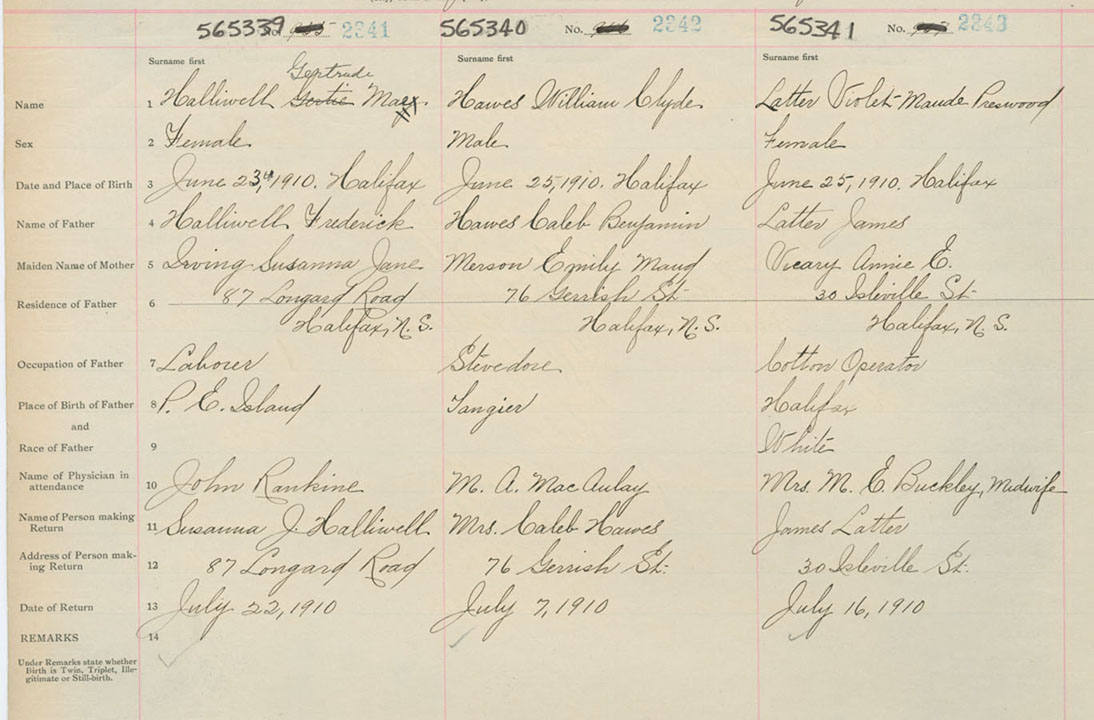 565339 2341 565340 No. 2342 565341 No. 2343
Surname first Surname first Surname first
Gertrude
Name 1 Halliwell Gertie Mary. Hawes William Clyde Latter Violet Maude Preswood
Sex 2 Female Male Female
Date and Place of Birth 3 June 23, 1910. Halifax June 25, 1910. Halifax June 25, 1910. Halifax
Name of Father 4 Halliwell Frederick Hawes Caleb Benjamin Latter James
Maiden Name of Mother 5 Irving Susanna Jane Merson Emily Maud Vicary Annie E.
Residence of Father 6 87 Longard Road 76 Gerrish St. 30 Isleville St.
Halifax, N.S. Halifax, N.S. Halifax, N.S.
Occupation of Father 7 Laborer Stevedore Cotton Operator
Place of Birth of Father 8 P. E. Island Tangier Halifax
and
Race of Father 9 White
Name of Physician in
attendance 10 John Rankine M. A. MacAulay Mrs. M. E. Buckley, Midwife
Name of Person making
Return 11 Susanna J. Halliwell Mrs. Caleb Hawes James Latter
Address of Person mak-
ing Return 12 87 Longard Road 76 Gerrish St. 30 Isleville St.
Date of Return 13 July 22, 1910 July 7, 1910 July 16, 1910
REMARKS 14
Under Remarks state whether
Birth is Twin, Triplet, Ille-
gitimate or Still-birth.